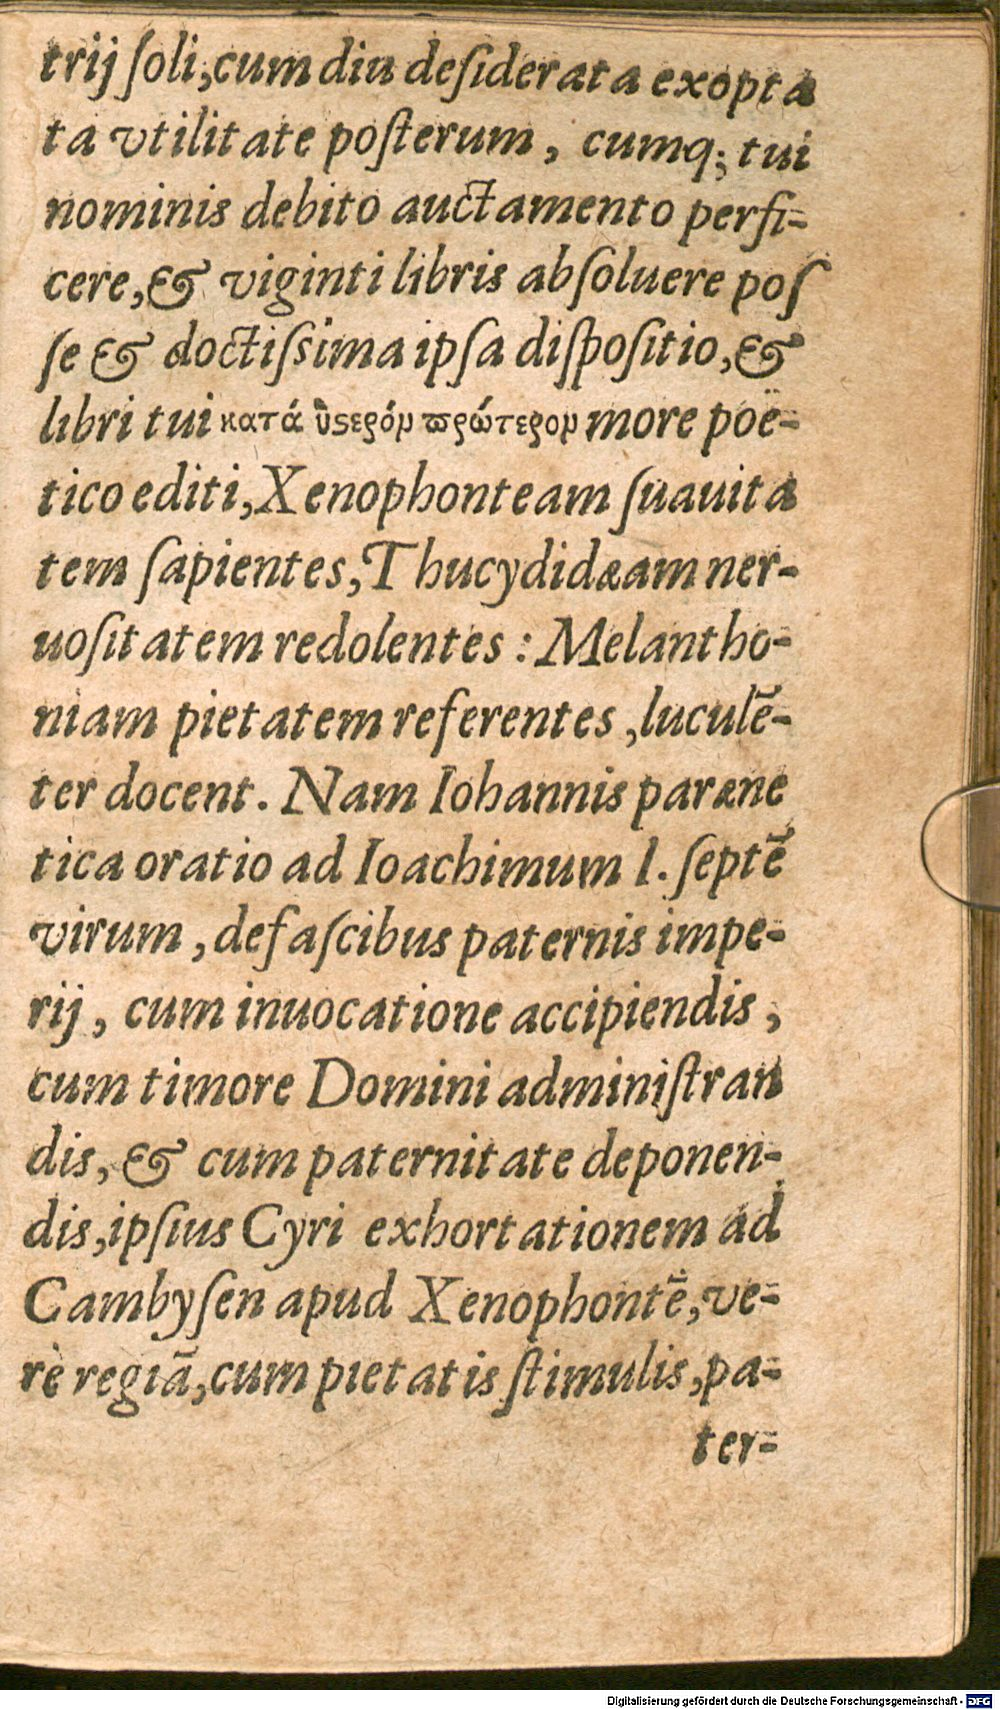 trij ſoli, cum diu deſiderata exopta
ta vtilitate poſterum, cumq; tui
nominis debito auctamento perfi-
cere, & viginti libris abſoluere poſ
ſe & doctiſsima ipſa diſpoſitio, &
libri tui κατά ὕϛερόν ϖρώτερον more poë-
tico editi, Xenophonteam ſuauita
tem ſapientes, Thucydidæam ner-
uoſitatem redolentes: Melantho-
niam pietatem referentes, luculē-
ter docent. Nam Iohannis paræne
tica oratio ad Ioachimum I. ſeptē
virum, de faſcibus paternis impe-
rij, cum inuocatione accipiendis,
cum timore Domini adminiſtran
dis, & cum paternitate deponen-
dis, ipſius Cyri exhortationem ad
Cambyſen apud Xenophontē, ve-
rè regiā, cum pietatis ſtimulis, pa-
ter-
Digitalisierung gefördert durch die Deutsche Forschungsgemeinschaft - DFG